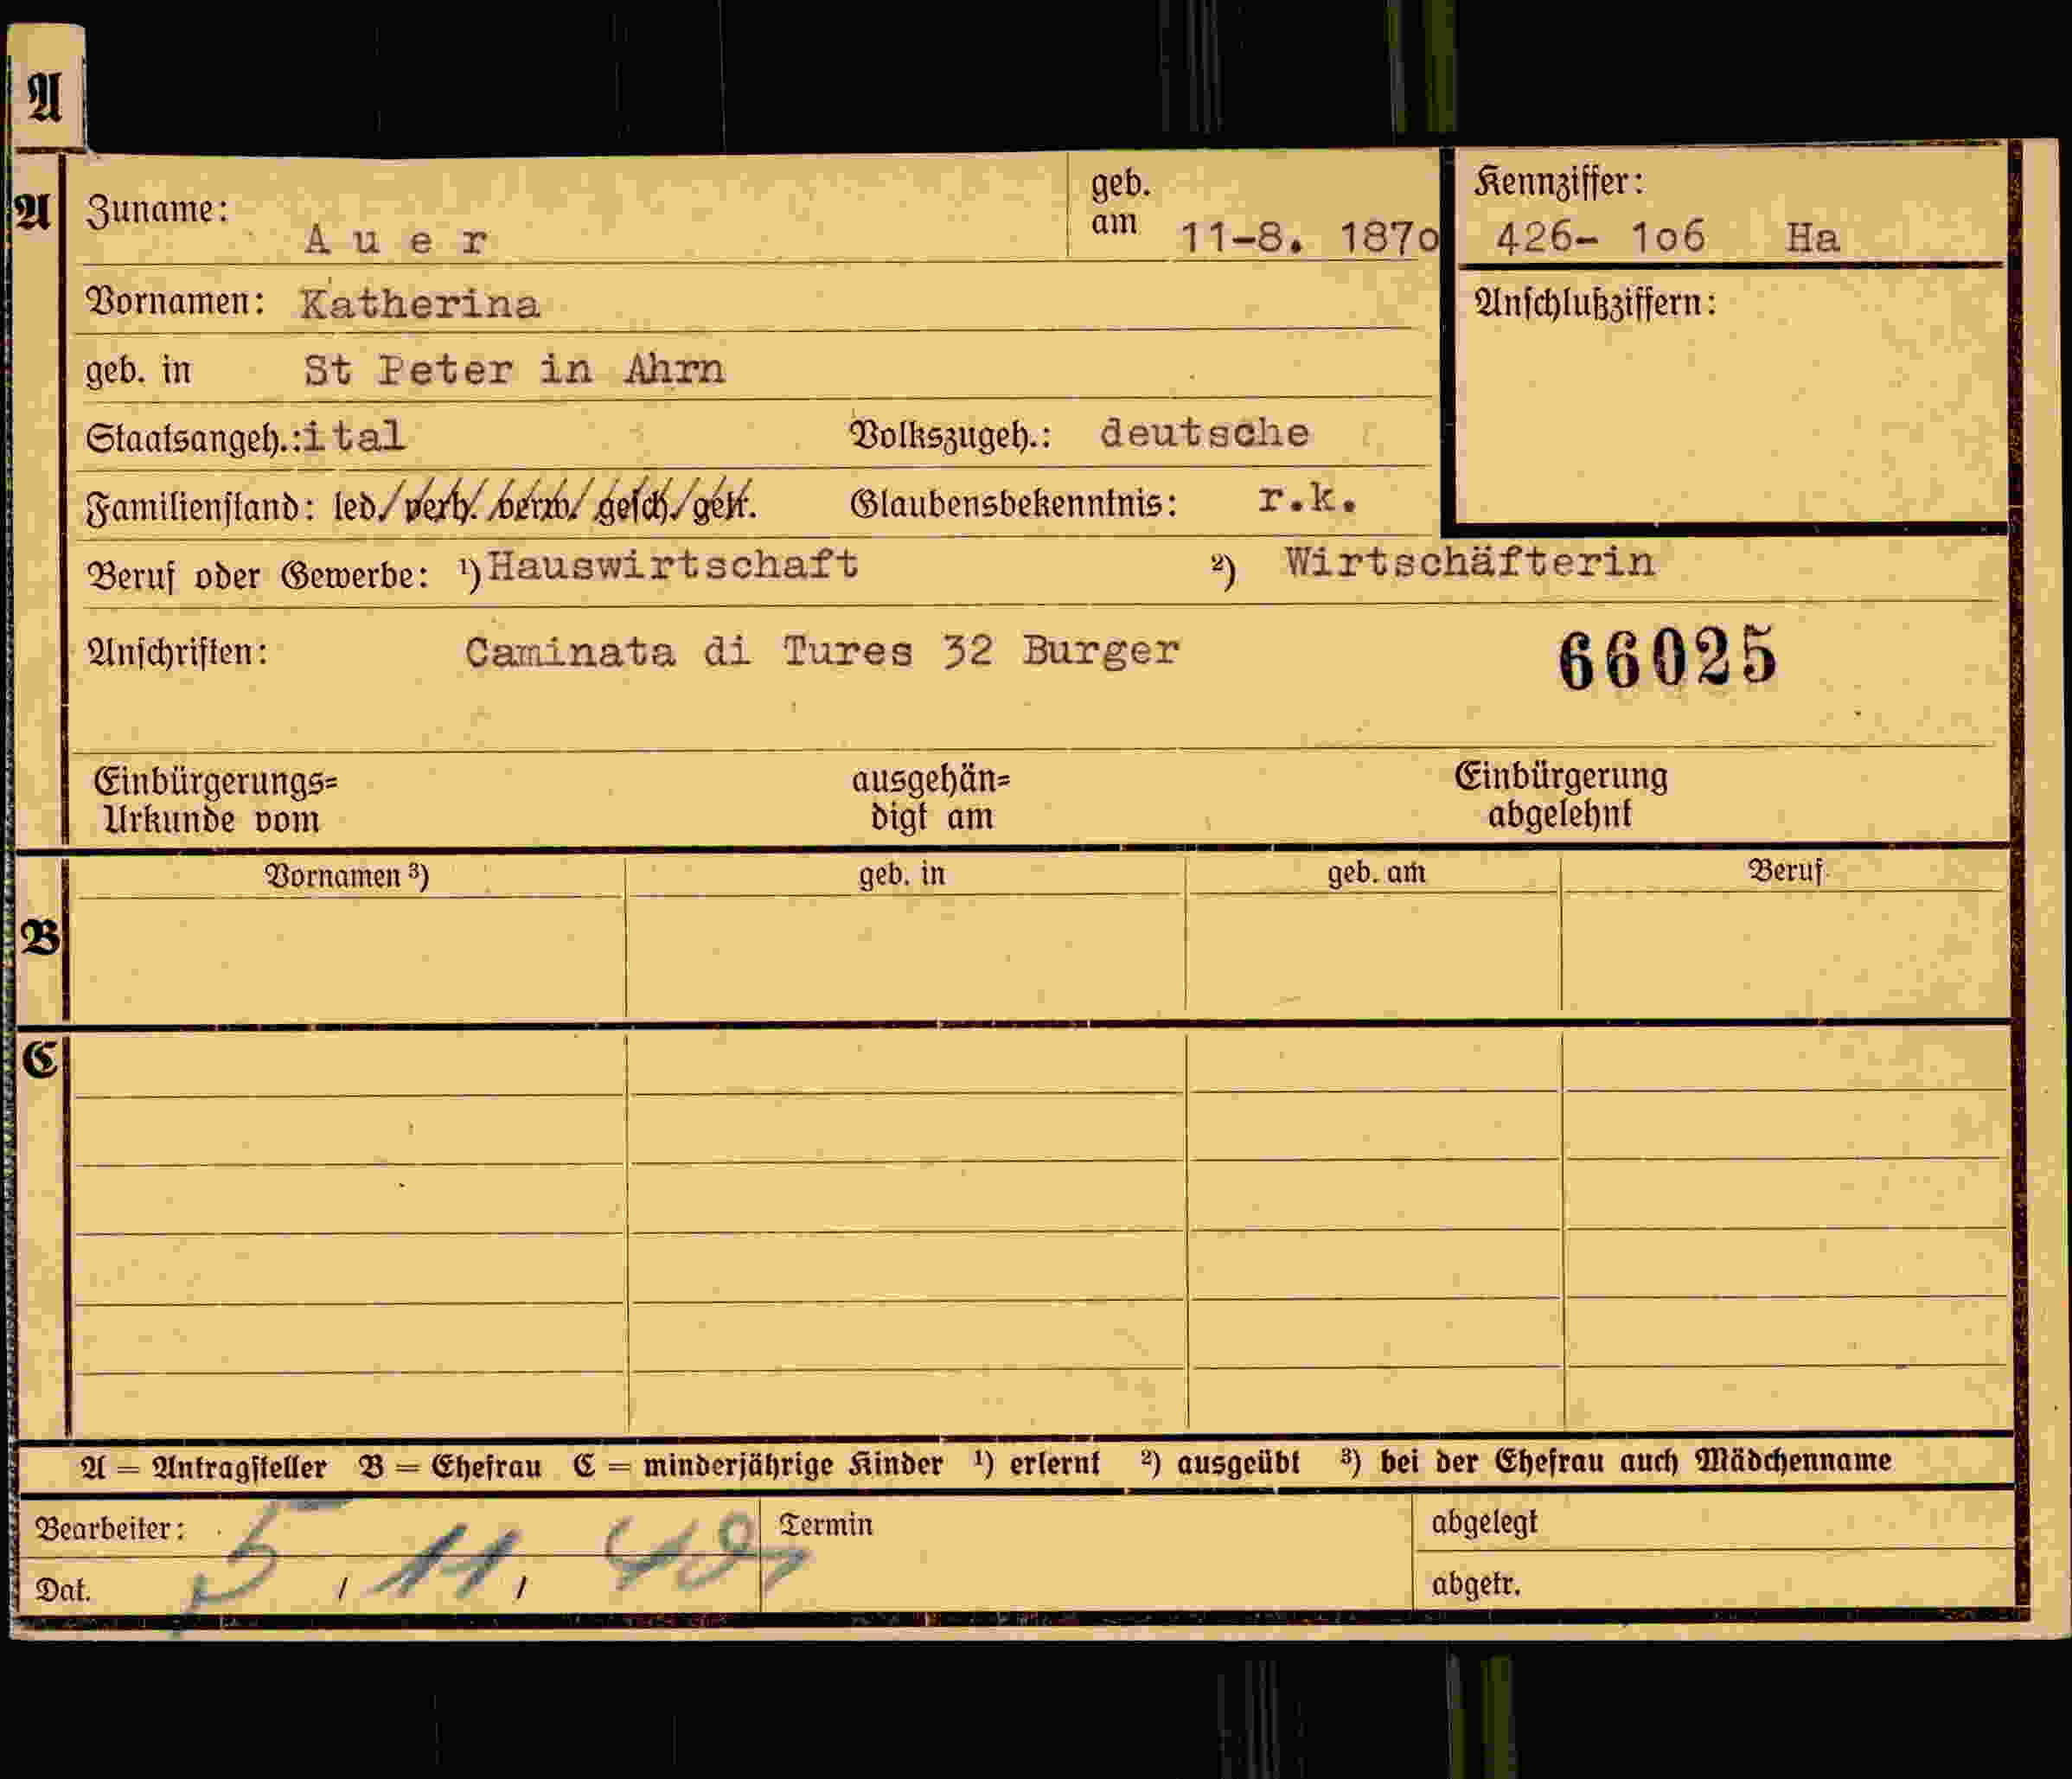 A
A
Zuname: Auer
geb. am 11-8. 1870
Kennziffer:
426- 1o6 Ha
Vornamen: Katherina
Anschlußziffern:
geb. in St Peter in Ahrn
Staatsangeh.: ital Volkszugeh.: deutsche
Familienstand: led./verh./verw./gesch./getr. Glaubensbekenntnis: r.k.
Beruf oder Gewerbe: ¹) Hauswirtschaft ²) Wirtschäfterin
Anschriften: Caminata di Tures 32 Burger 66025
Einbürgerungs= ausgehän= Einbürgerung
Urkunde vom digt am abgelehnt
Vornamen ³) geb. in geb. am Beruf
B
C
A = Antragsteller B = Ehefrau C = minderjährige Kinder ¹) erlernt ²) ausgeübt ³) bei der Ehefrau auch Mädchenname
Bearbeiter: Termin abgelegt
Dat. 5 / 11 / abgetr.